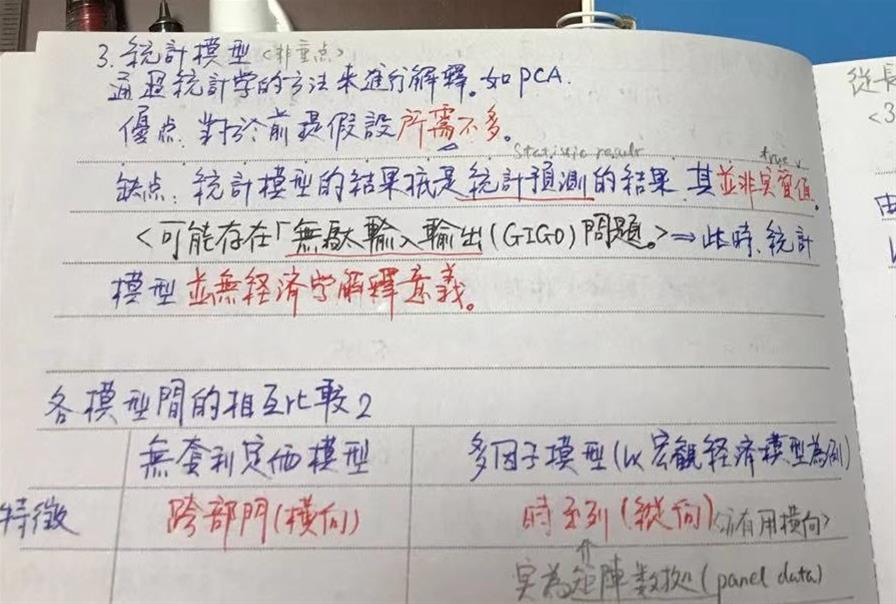 3. 統計模型 <非重点>
通過統計学的方法来進行解釋。如PCA.
優点:對於前提假設所需不多。
statistic result true
缺点:統計模型的結果祇是統計預測的結果 其並非実質値。
<可能存在「無駄輸入輸出(GIGO)問題。>⇒此時、統計
模型並無経済学解釋意義。
各模型間的相互比較2
無套利定価模型 多因子模型(以宏観経済模型為例)
特徴 跨部門(橫向) 時系列(縦向)<亦有用橫向>
⇑
実為矩陣数拠(panel data)
從長
<3
由